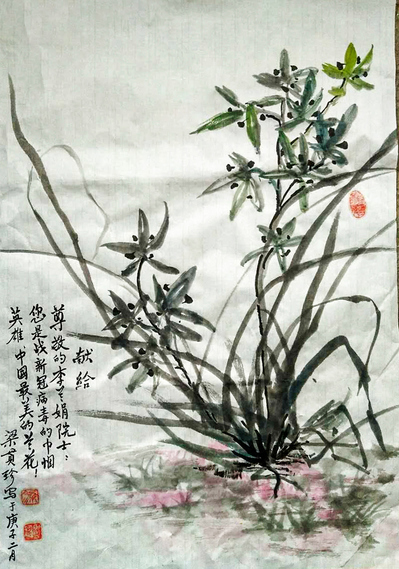 献给
尊敬的李兰娟院士：
您是战新冠病毒的巾帼
英雄 中国最美的兰花！
梁贵珍写于庚子二月